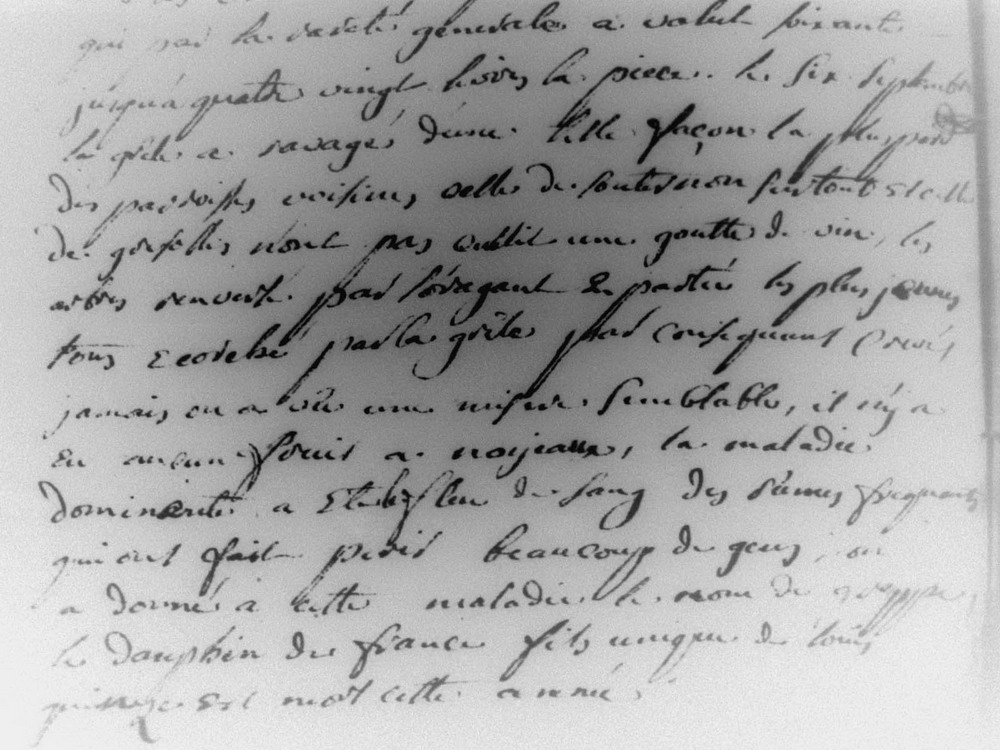 qui par la rareté generale a valut soixante
jusqu'a quatre vingt livres la piece. le six septembre
la grele a ravagé d'une telle façon la pluspart
des paroisses voisines, celle de souternon surtout et celle
de grezolles n'ont pas cuillit une goutte de vin, les
arbres renversé par l'oragant en partie les plus jeunes
tous ecorché par la grêle par consequant crevés
jamais on a vû une misere semblable, il n'y a
eu aucun fruit a noyeaux, la maladie
dominante a eté le flux de sang des rûmes frequants
qui ont fait perir beaucoup de gens, on
a donné a cette maladie le nom de greyppe,
le dauphin de france fils unique de louis
quinze est mort cette année